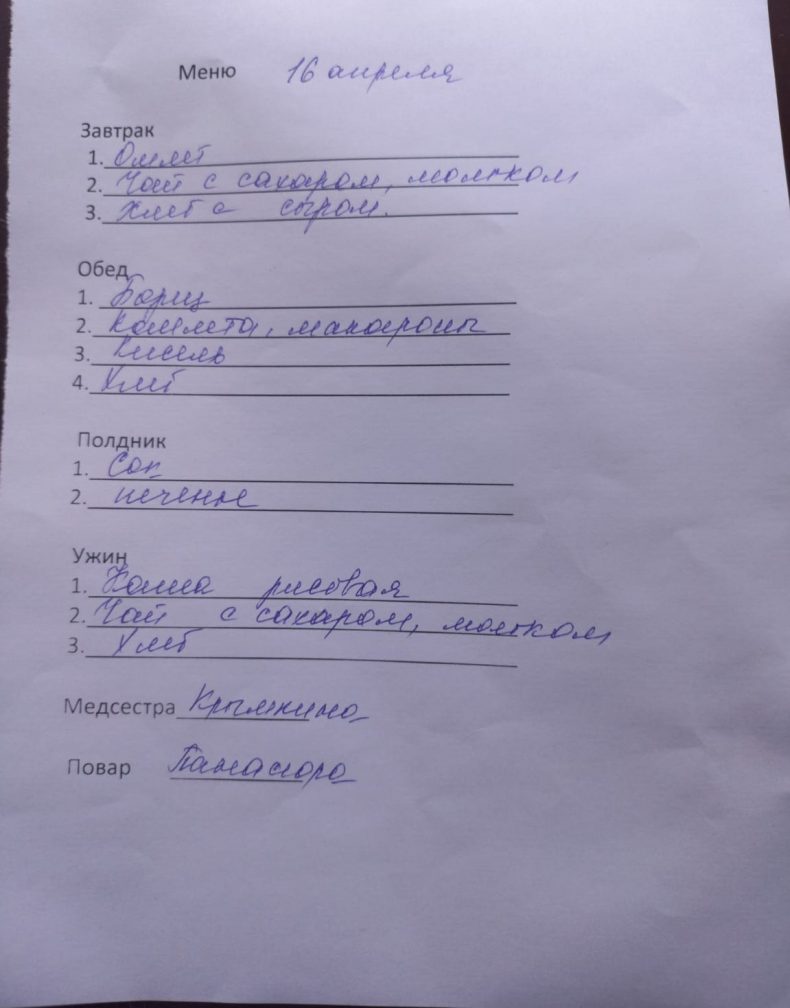 Меню 16 апреля
Завтрак
1. Омлет
2. Чай с сахаром, молоком
3. Хлеб с сыром.
Обед
1. Борщ
2. Котлета, макароны
3. Кисель
4. Хлеб
Полдник
1. Сок
2. печенье
Ужин
1. Каша рисовая
2. Чай с сахаром, молоком
3. Хлеб
Медсестра
Повар